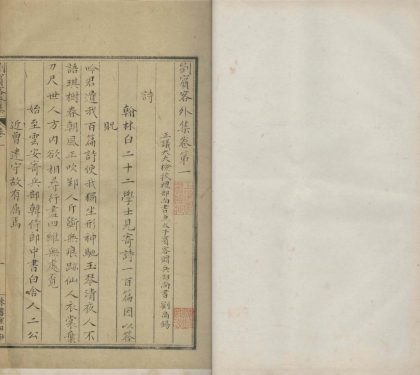 劉賓客外集卷第一
正議大夫檢校禮部尚書兼太子賓客贈兵部尚書劉禹錫
詩
翰林白二十二學士見寄詩一百篇因以答
貺
吟君遺我百篇詩使我獨坐形神馳玉琴清夜人不
語琪樹春朝風正吹郢人斤斲無痕跡仙人衣裳棄
刀尺世人方內欲相尋行盡四維無處覓
始至雲安寄兵部韓侍郎中書白舍人二公
近曾遠守故有屬焉